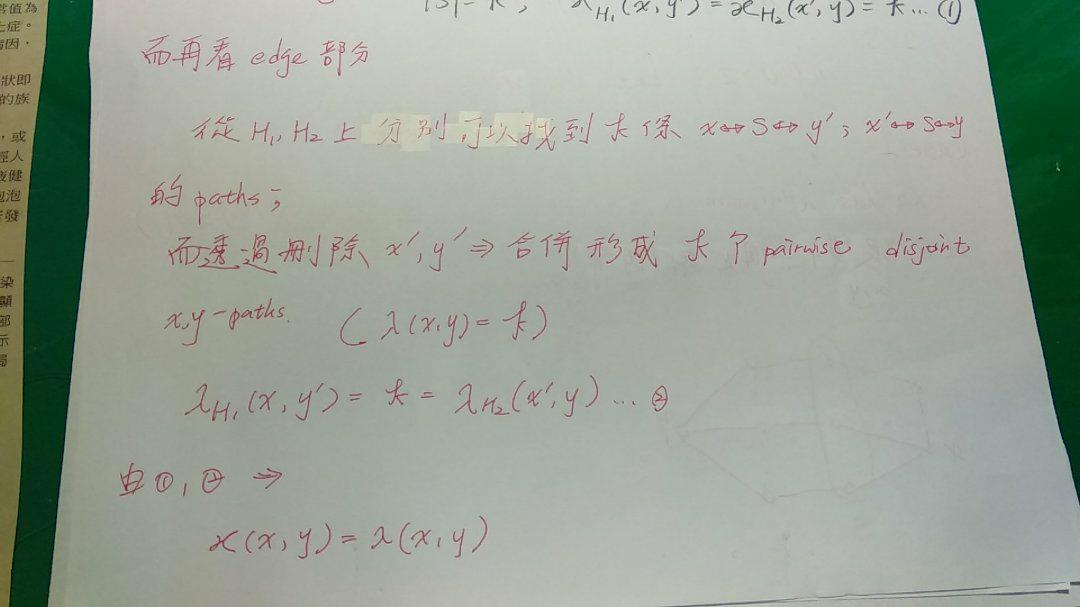 值為
上症。
病因，
狀即
的族
，或
經人
健
泡泡
發
染
顯
部
示
局
|S| = k , κH₁(x, y') = κH₂(x', y) = k ... ①
而再看 edge 部分
從 H₁, H₂ 上 分別 可以找到 k 條 x↔S↔y' ; x'↔S↔y
的 paths ;
而透過刪除 x', y' ⇒ 合併形成 k 个 pairwise disjoint
x,y-paths. ( λ(x,y) = k )
λH₁(x, y') = k = λH₂(x', y) ... ②
由 ①, ② ⇒
κ(x, y) = λ(x, y)